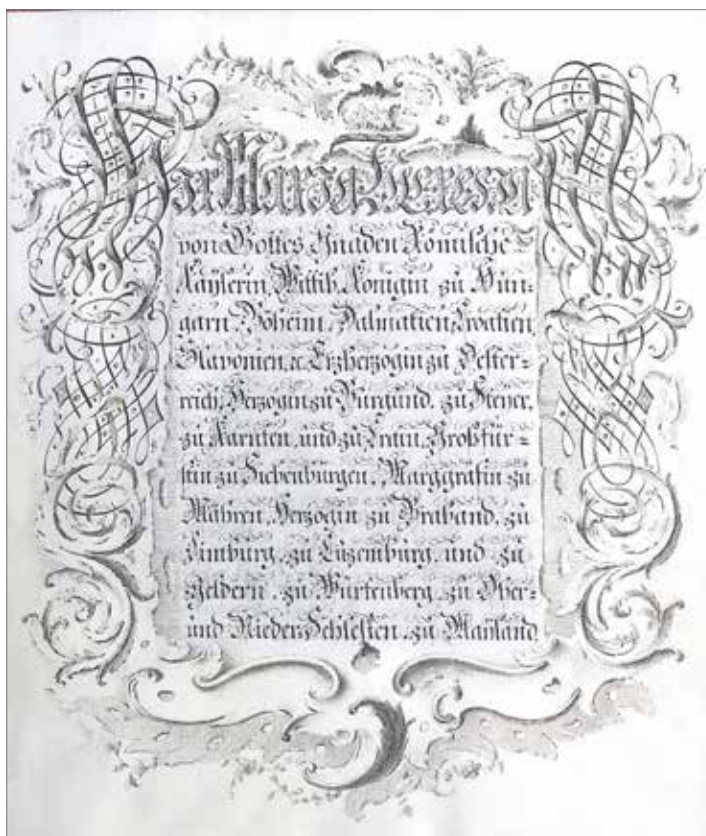 Wir Maria Theresia
von Gottes Gnaden Römische
Käyserin, Wittib, Königin zu Hun-
garn, Böheim, Dalmatien, Croatien,
Slavonien, ꝛc. Erzherzogin zu Oester-
reich, Herzogin zu Burgund, zu Steyer,
zu Kärnten, und zu Crain, Großfür-
stin zu Siebenbürgen, Marggräfin zu
Mähren, Herzogin zu Braband, zu
Limburg, zu Lüzemburg, und zu
Geldern, zu Würtenberg, zu Ober-
und Nieder-Schlesien, zu Mayland,